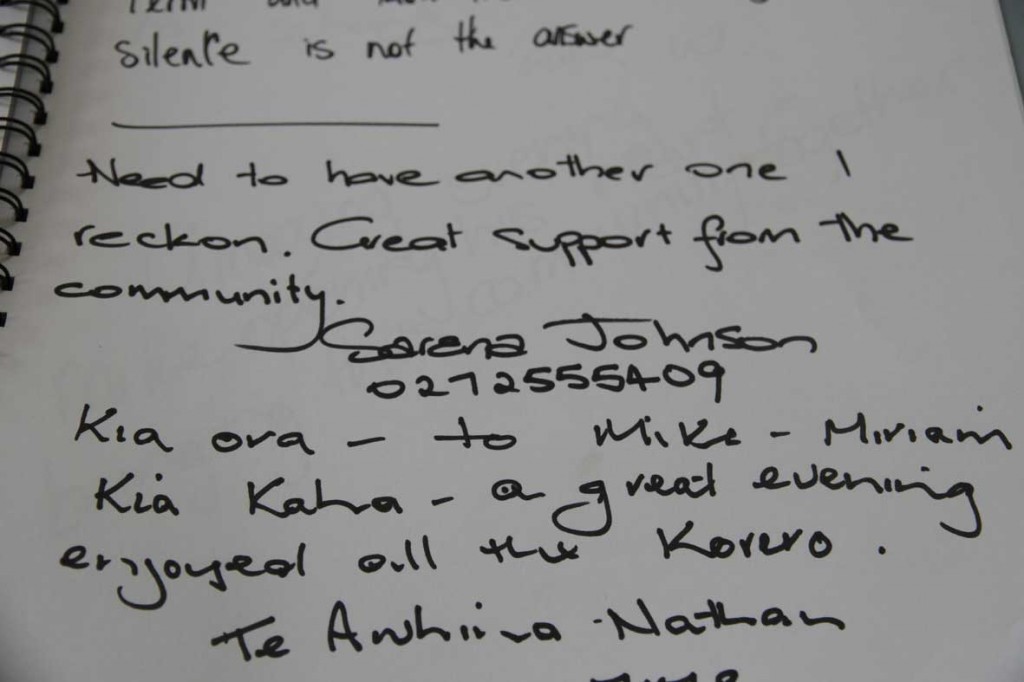 silence is not the answer
Need to have another one I
reckon. Great support from the
community.
Sarena Johnson
0272555409
Kia ora - to Mike - Miriam
Kia Kaha - a great evening
enjoyed all the Korero.
Te Awhiina Nathan